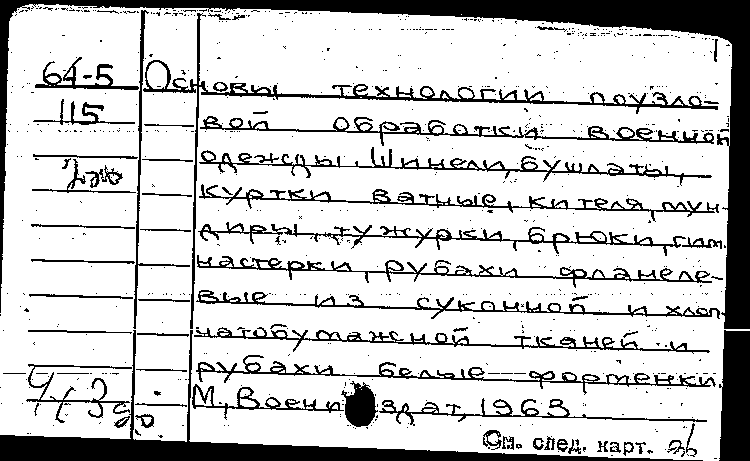 64-5 Основы технологии поузло-
115 вой обработки военной
одежды. Шинели, бушлаты,
куртки ватные, кителя, мун-
диры, тужурки, брюки, гим.
настерки, рубахи фланеле-
вые из суконной и хлоп-
чатобумажной тканей и
рубахи белые фортенки.
М., Воениздат, 1963.
См. след. карт.